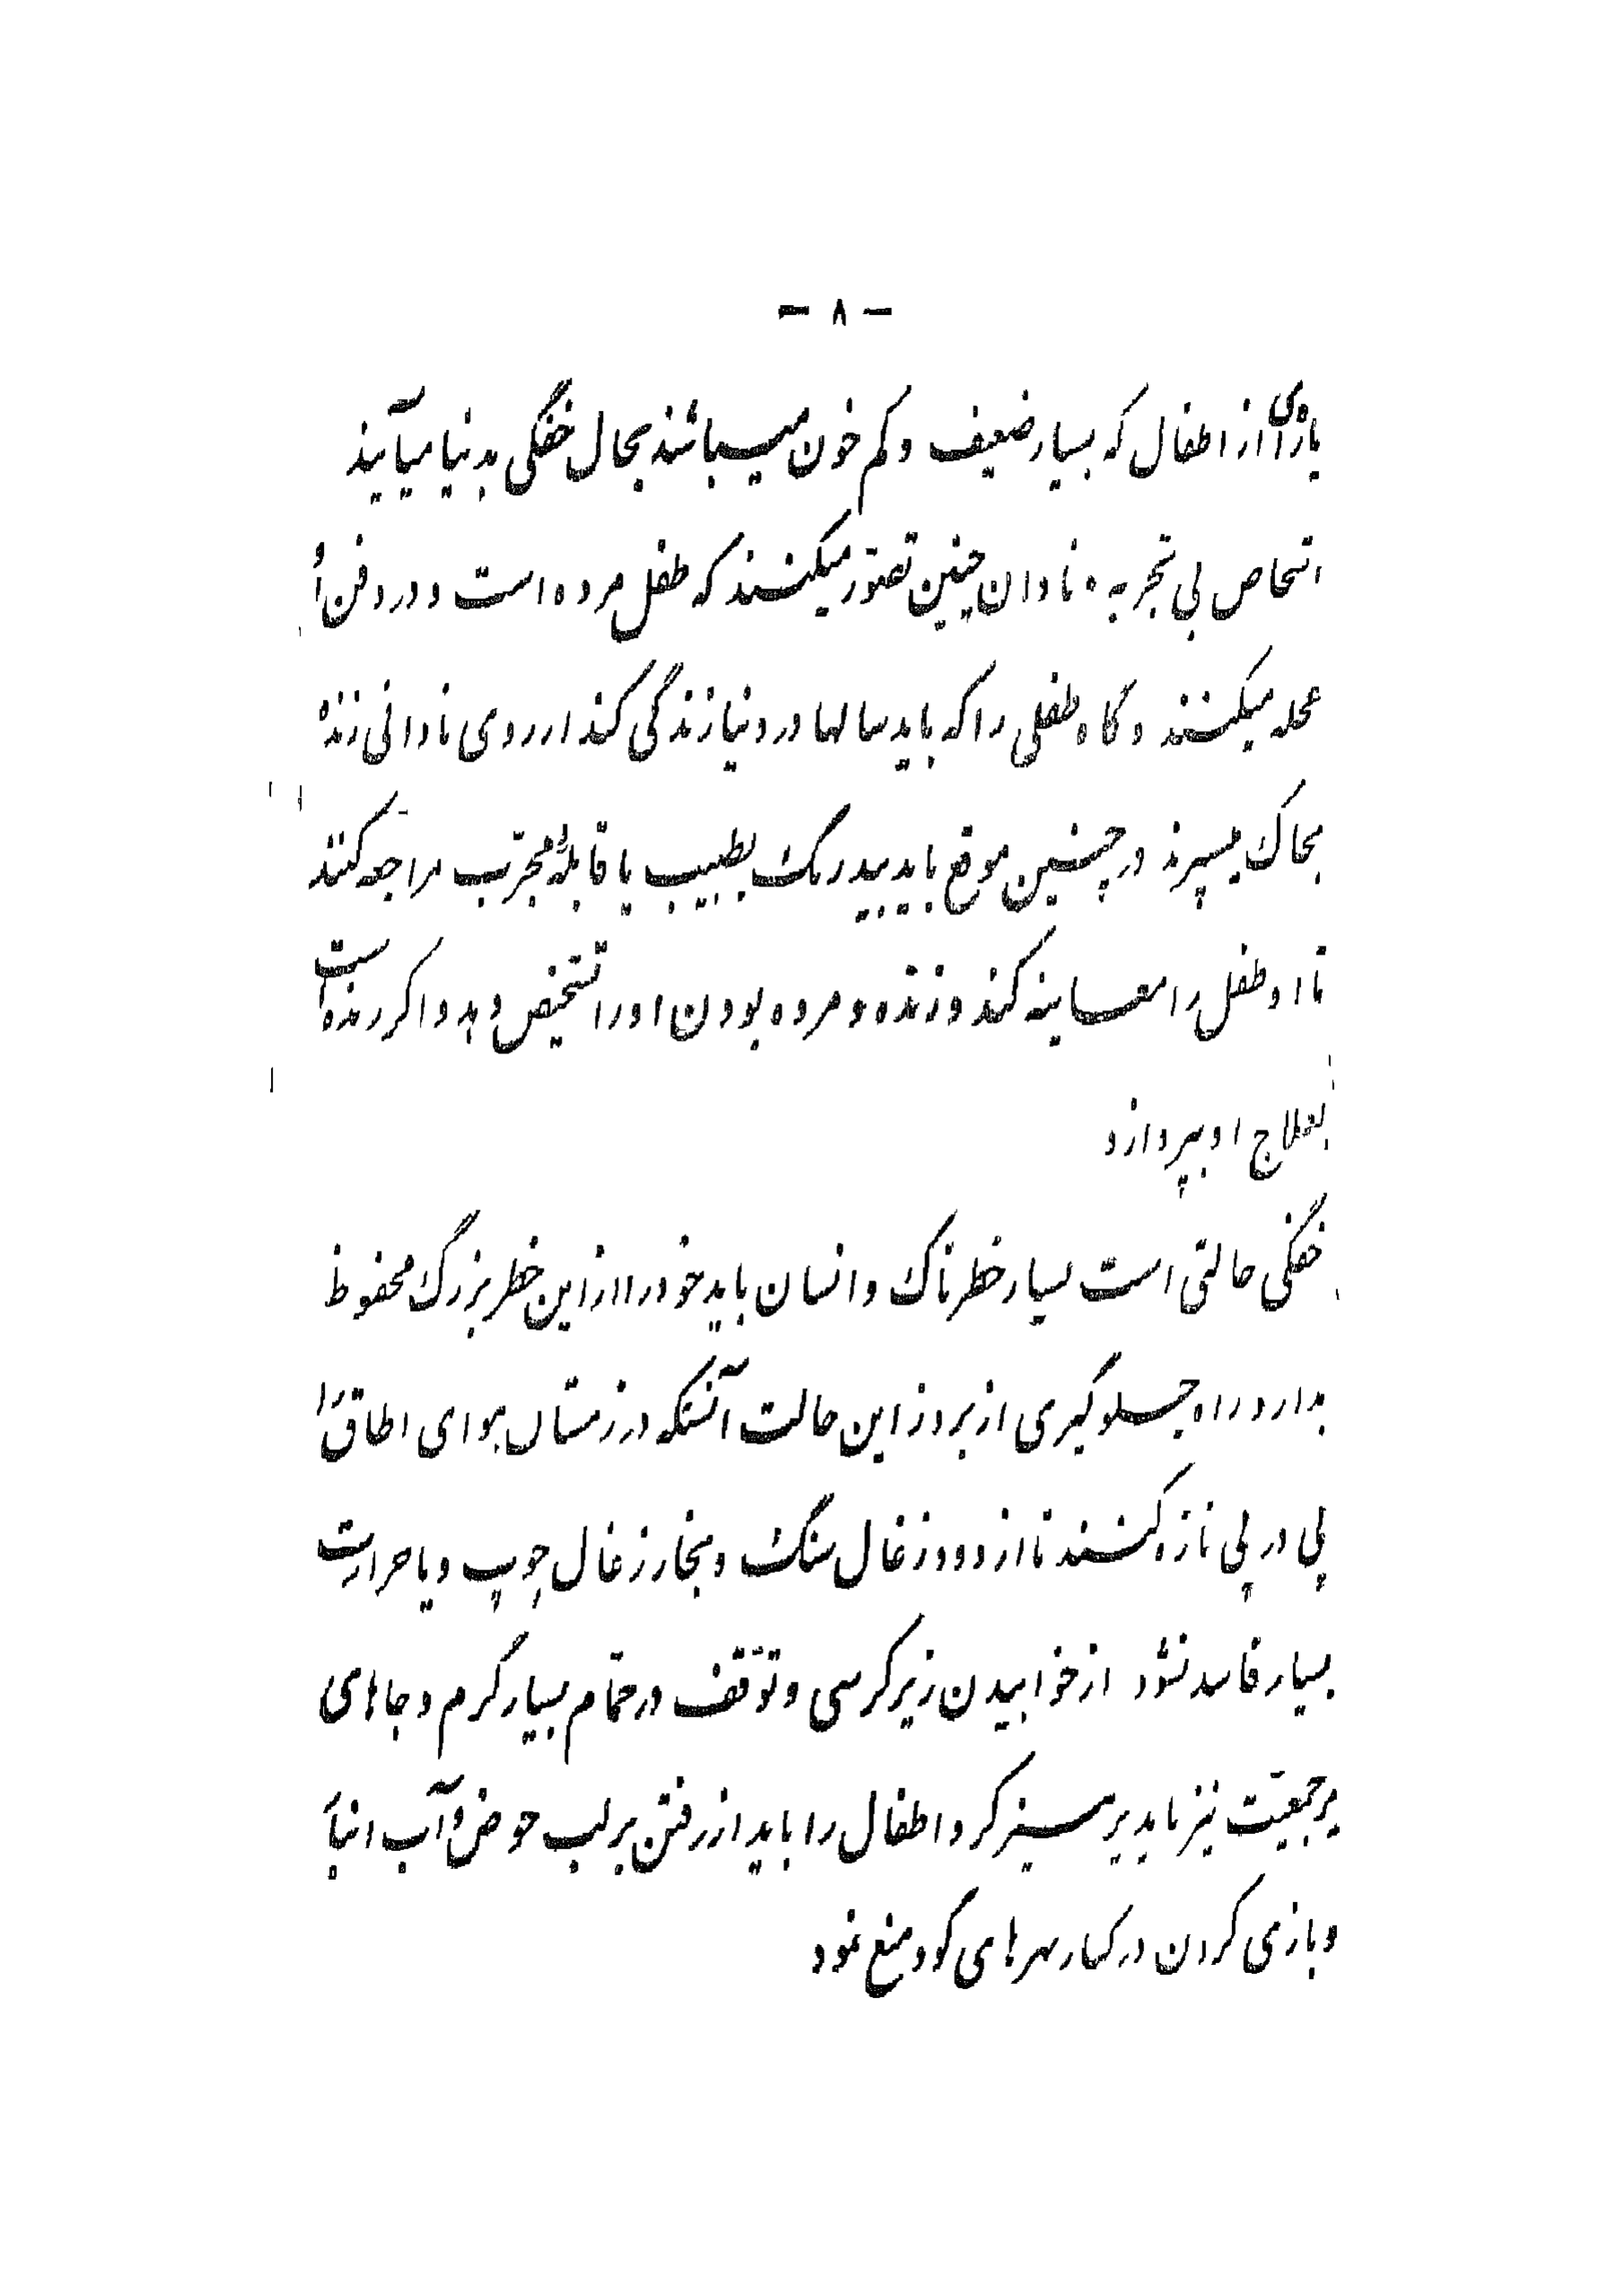 - ۸ -
پاره‌ای از اطفال که بسیار ضعیف و کم خون میباشند بحال خفگی بدنیا میآیند
اشخاص بی تجربه و نادان چنین تصوّر میکنند که طفل مرده است و در دفن او
عجله میکنند و گاه طفلی را که باید سالها در دنیا زندگی کند از روی نادانی زنده
بخاک میسپرند در چنین موقع باید بیدرنگ بطبیب یا قابلهٔ مجرّب مراجعه کنند
تا او طفل را معاینه کند و زنده و مرده بودن او را تشخیص دهد و اگر زنده است
بعلاج او بپردازد
خفگی حالتی است بسیار خطرناک و انسان باید خود را از این خطر بزرگ محفوظ
بدارد راه جلوگیری از بروز این حالت آنستکه در زمستان هوای اطاق را
پی در پی تازه کنند تا از دود زغال سنگ و بخار زغال چوب و یا حرارت
بسیار فاسد نشود از خوابیدن زیر کرسی و توقّف در حمّام بسیار گرم و جاهای
پرجمعیّت نیز باید پرهیز کرد اطفال را باید از رفتن بر لب حوض و آب انبار
و بازی کردن در کنار نهرهای گود منع نمود